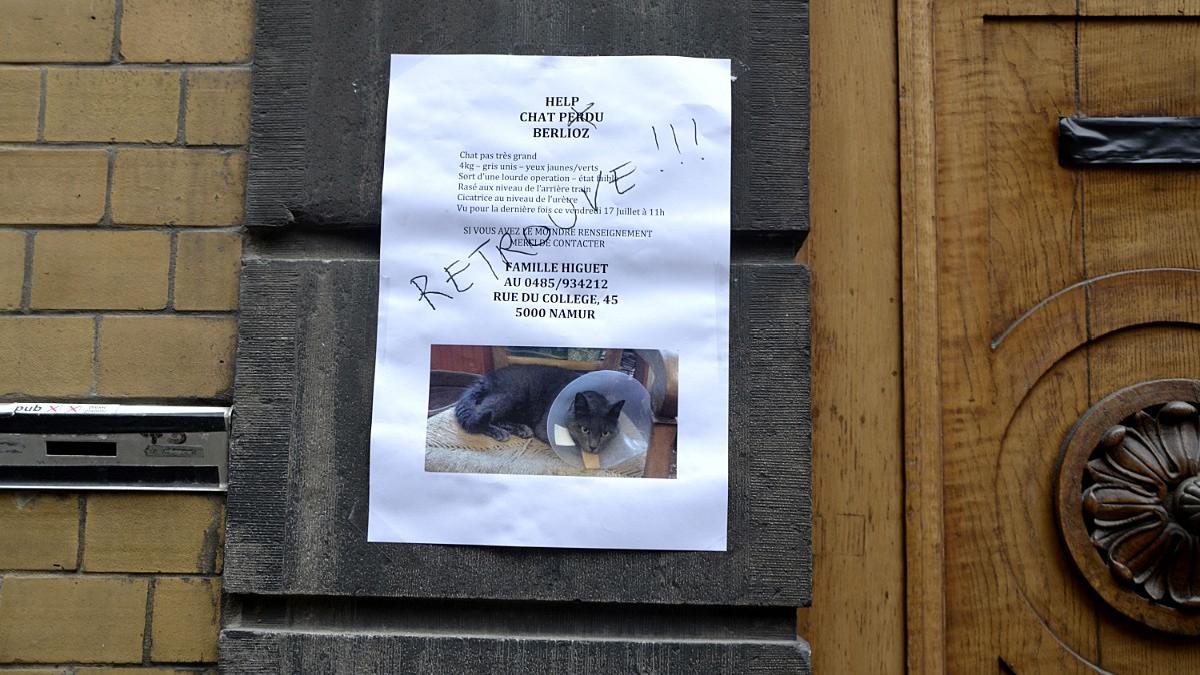 HELP
CHAT PERDU
BERLIOZ
Chat pas très grand
4kg – gris unis – yeux jaunes/verts
Sort d'une lourde operation – état faible
Rasé aux niveau de l'arrière train
Cicatrice au niveau de l'urètre
Vu pour la dernière fois ce vendredi 17 Juillet à 11h
SI VOUS AVEZ LE MOINDRE RENSEIGNEMENT
MERCI DE CONTACTER
RETROUVE !!!
FAMILLE HIGUET
AU 0485/934212
RUE DU COLLEGE, 45
5000 NAMUR
pub X X